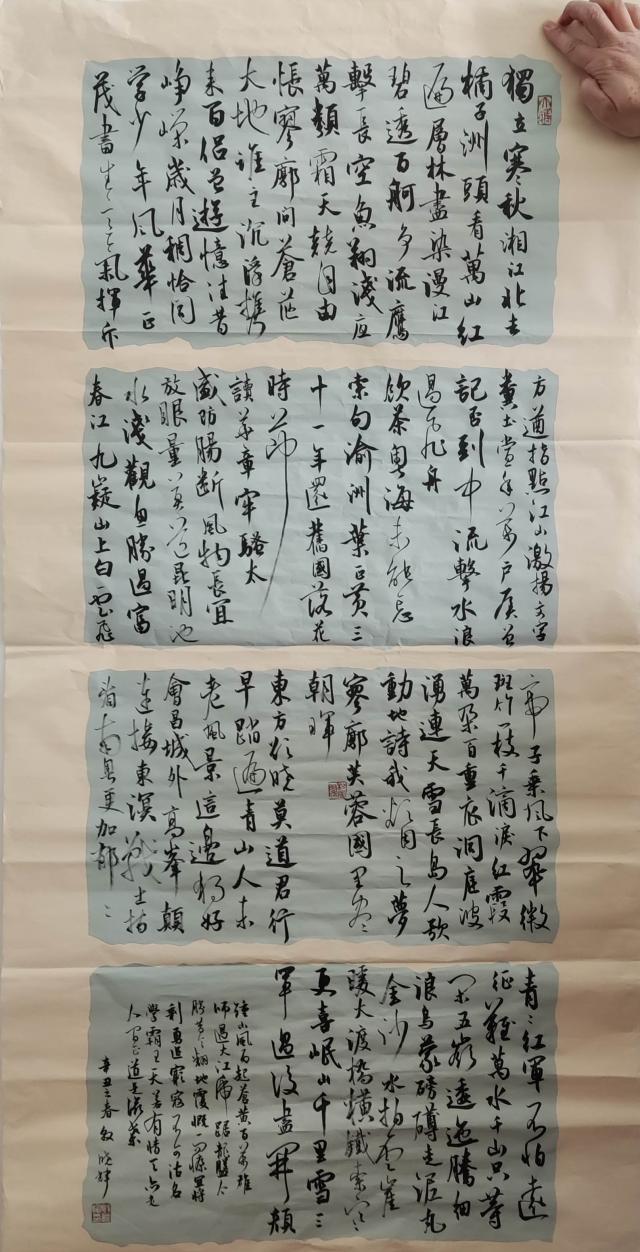 獨立寒秋湘江北去
橘子洲頭看萬山紅
遍層林盡染漫江
碧透百舸爭流鷹
擊長空魚翔淺底
萬類霜天競自由
悵寥廓問蒼茫
大地誰主沉浮攜
來百侶曾遊憶往昔
崢嶸歲月稠恰同
學少年風華正
茂書生意氣揮斥
方遒指點江山激揚文字
糞土當年萬戶侯曾
記否到中流擊水浪
遏飛舟
飲茶粵海未能忘
索句渝洲葉正黃三
十一年還舊國落花
時節
讀華章牢騷太
盛防腸斷風物長宜
放眼量莫道昆明池
水淺觀魚勝過富
春江九嶷山上白雲飛
帝子乘風下翠微
斑竹一枝千滴淚紅霞
萬朵百重衣洞庭波
湧連天雪長島人歌
動地詩我欲因之夢
寥廓芙蓉國里盡
朝暉
東方欲曉莫道君行
早踏遍青山人未
老風景這邊獨好
會昌城外高峰顛
連接東溟戰士指
看南粵更加郁々
青々紅軍不怕遠
征難萬水千山只等
閒五嶺逶迤騰細
浪烏蒙磅礴走泥丸
金沙水拍雲崖
暖大渡橋橫鐵索寒
更喜岷山千里雪三
軍過後盡開顏
鍾山風雨起蒼黃百萬雄
師過大江虎踞龍盤今
勝昔天翻地覆慨而慷宜將
剩勇追窮寇不可沽名
學霸王天若有情天亦老
人間正道是滄桑
辛丑之春